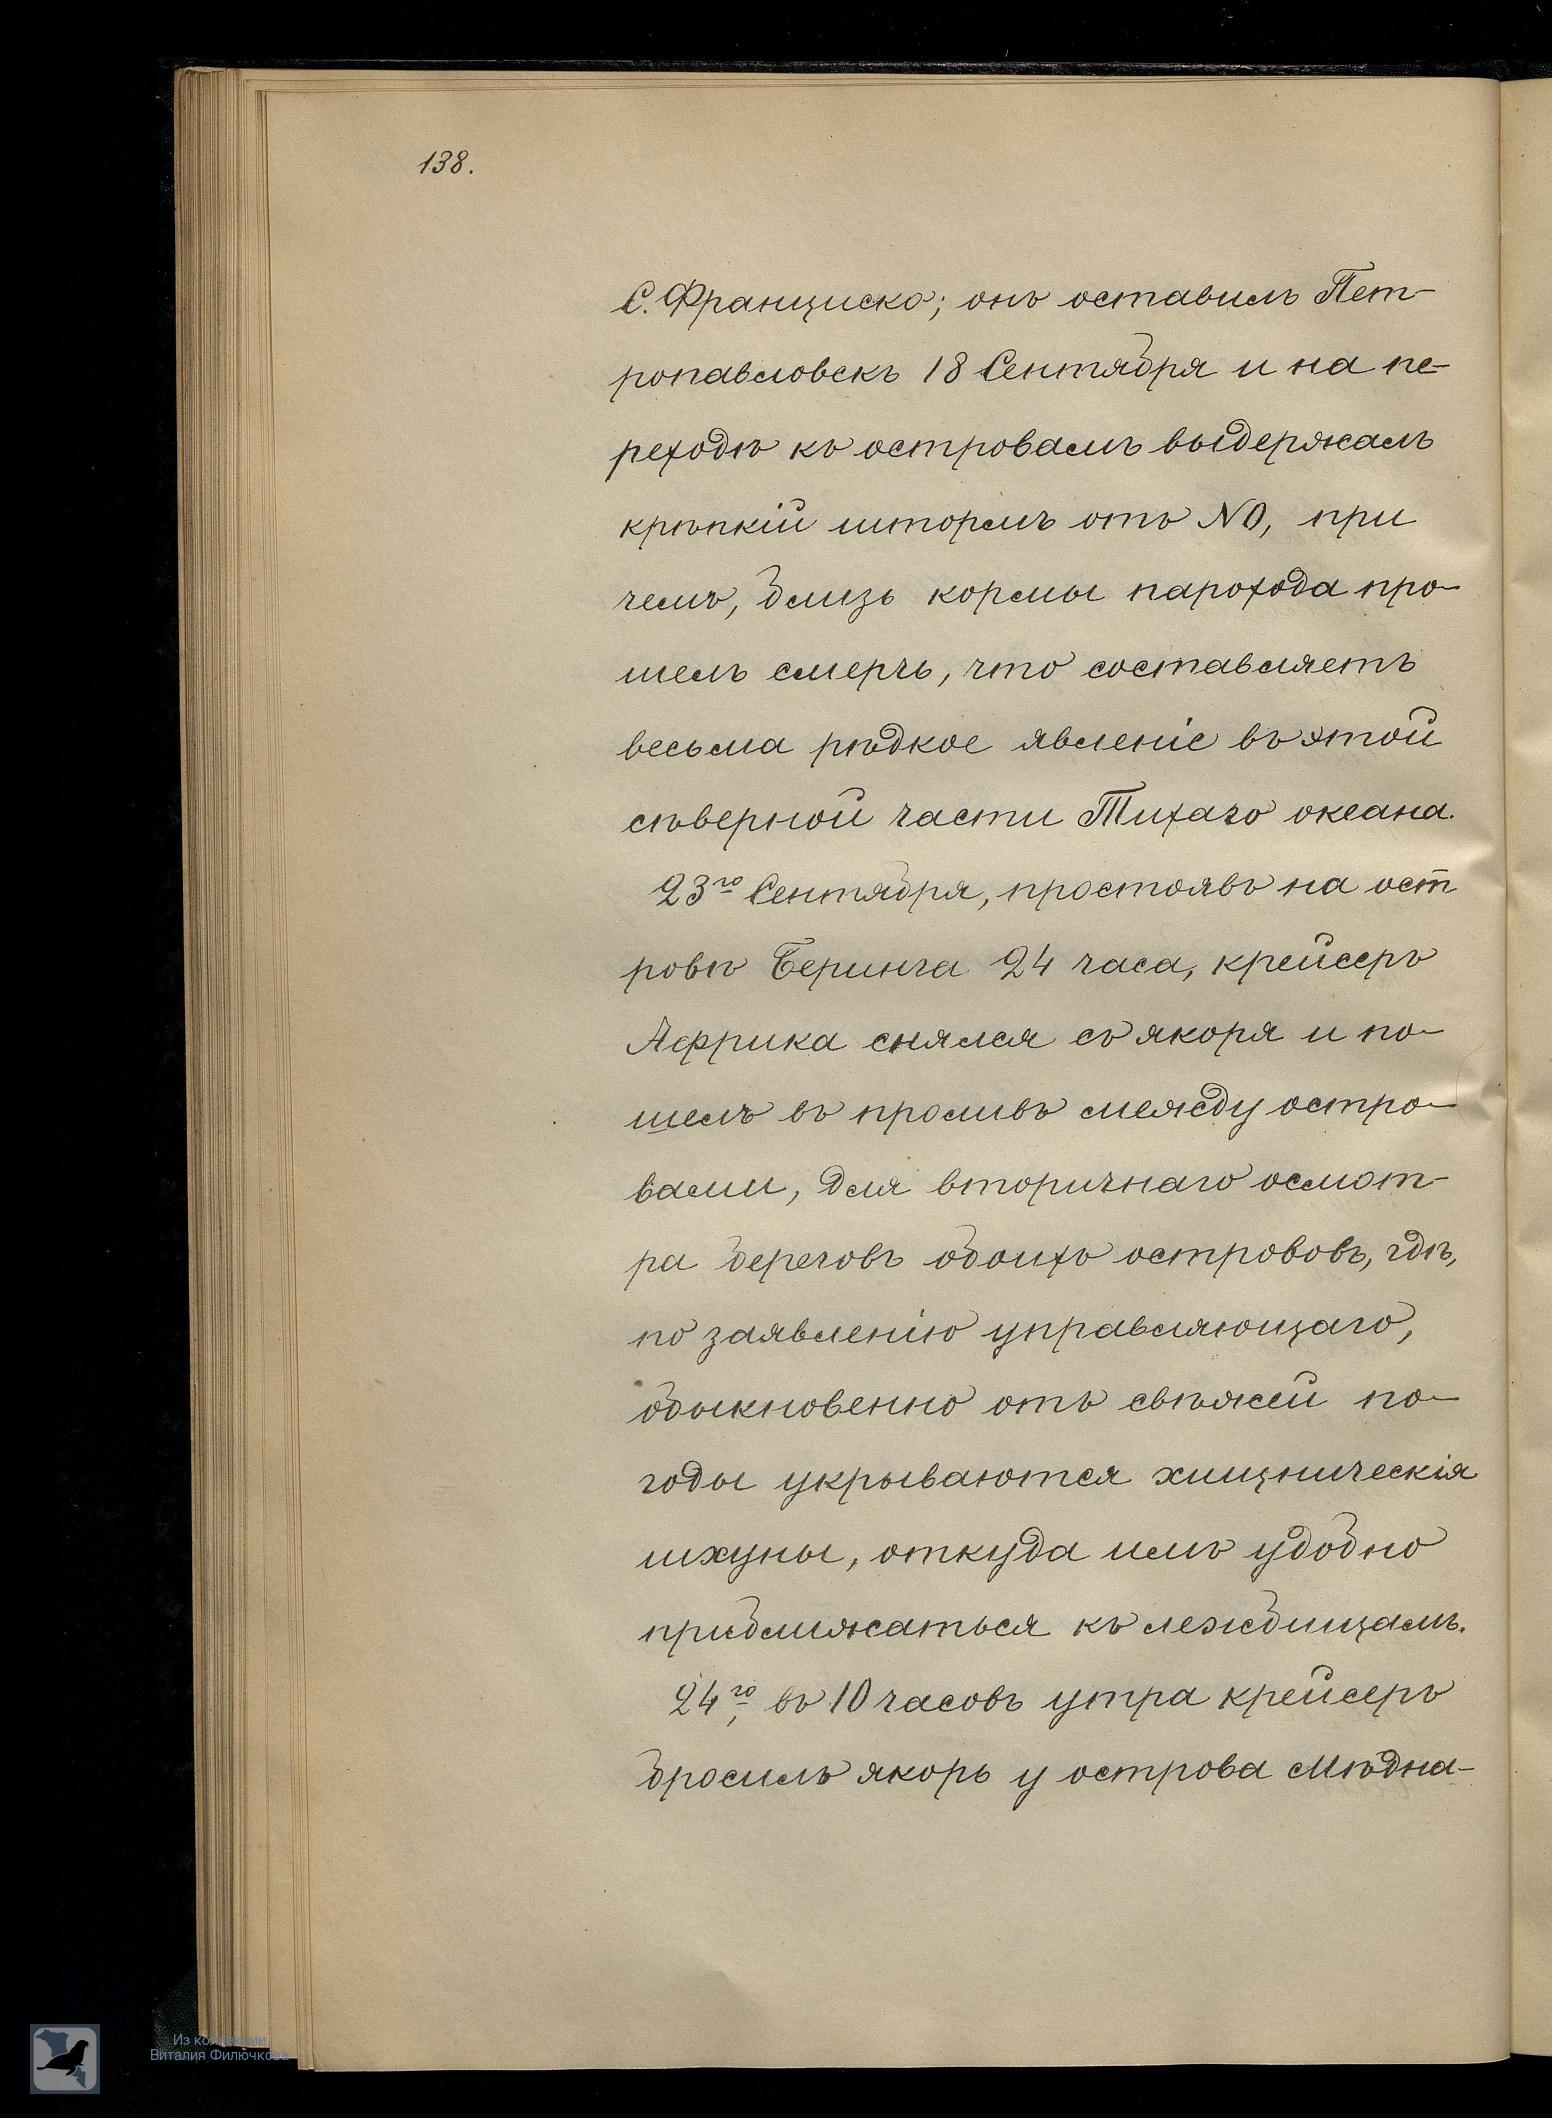 138.
С. Франциско; онъ оставилъ Пет-
ропавловскъ 18 Сентября и на пе-
реходѣ къ островамъ выдержалъ
крѣпкій штормъ отъ NO, при
чемъ, близь кормы парохода про-
шелъ смерчь, что составляетъ
весьма рѣдкое явленіе въ этой
сѣверной части Тихаго океана.
23го Сентября, простоявъ на ост
ровѣ Беринга 24 часа, крейсеръ
Африка снялся съ якоря и по-
шелъ въ проливъ между остро-
вами, для вторичнаго осмот-
ра береговъ обоихъ острововъ, гдѣ,
по заявленію управляющаго,
обыкновенно отъ свѣжей по-
годы укрываются хищническія
шхуны, откуда имъ удобно
приближаться къ лежбищамъ.
24го, въ 10 часовъ утра крейсеръ
бросилъ якорь у острова Мѣдна-
Из коллекции
Виталия Филючкова